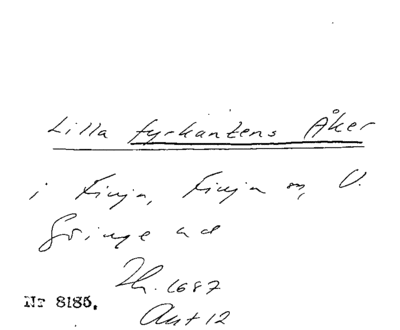 Lilla fyrkantens Åker
i Finja, Finja sn, V.
Göinge hd
Th. 1687
Ant 12
Nr 8185.